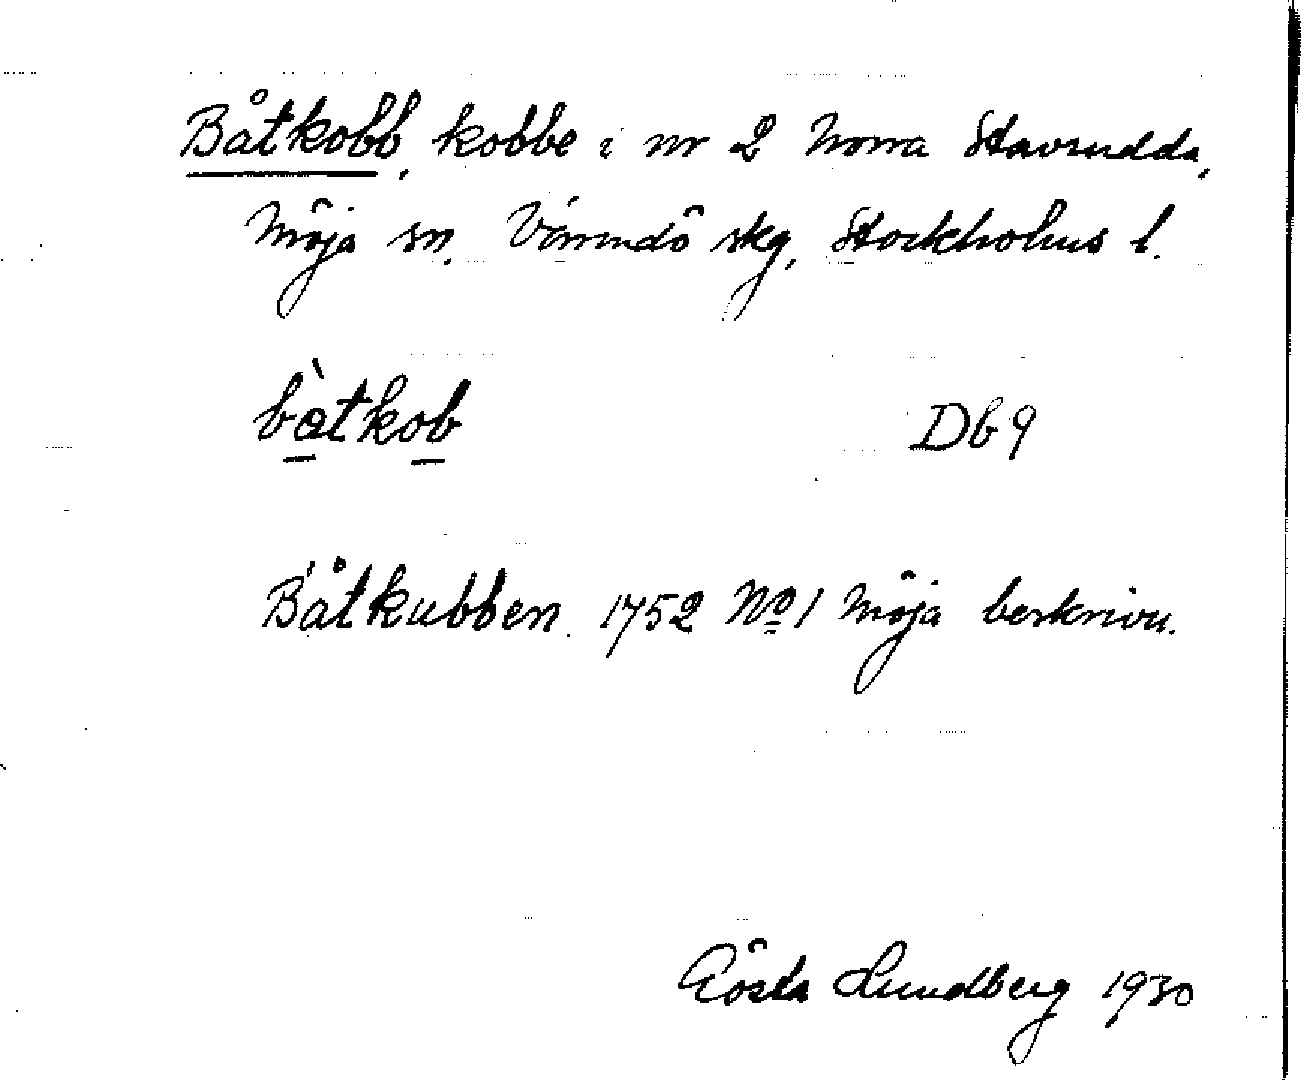 Båtkobb, kobbe i nr 2 Norra Stavsudda,
Möja sn. Värmdö skg, Stockholms l.
bàtkob Db 9
Båtkubben. 1752 No 1 Möja beskrivn.
Gösta Lundberg 1930